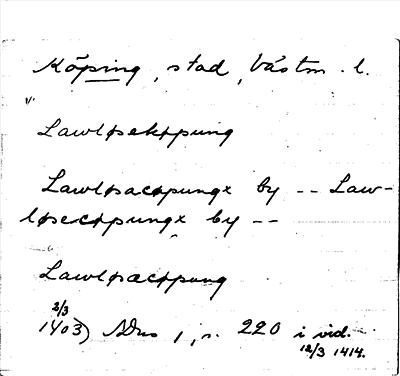 Köping, stad, Västm. l.
v.
Lawløsekøpung
Lawløsacøpungx by -- Law-
løsecøpungx by --
Lawløsacøpung
2/3
1403) SDns 1, s. 220 i vid.
12/3 1414.